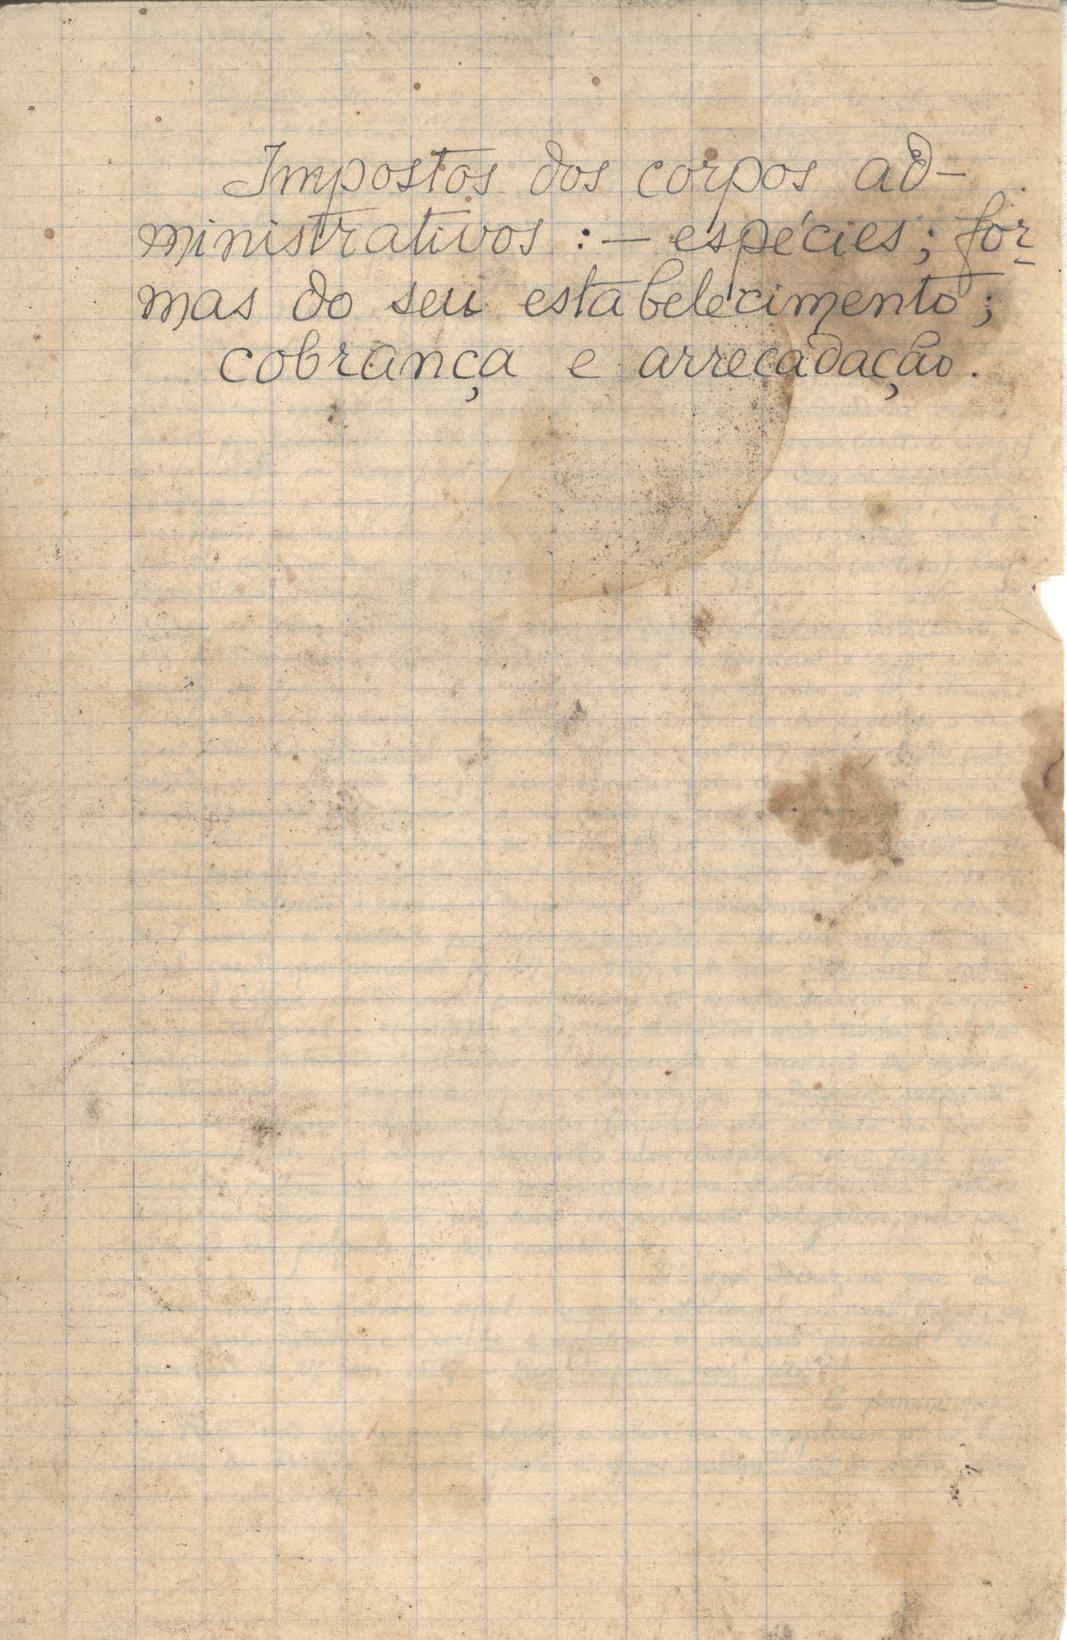 Impostos dos corpos ad-
ministrativos :— espécies; for-
mas do seu estabelecimento;
cobrança e arrecadação.